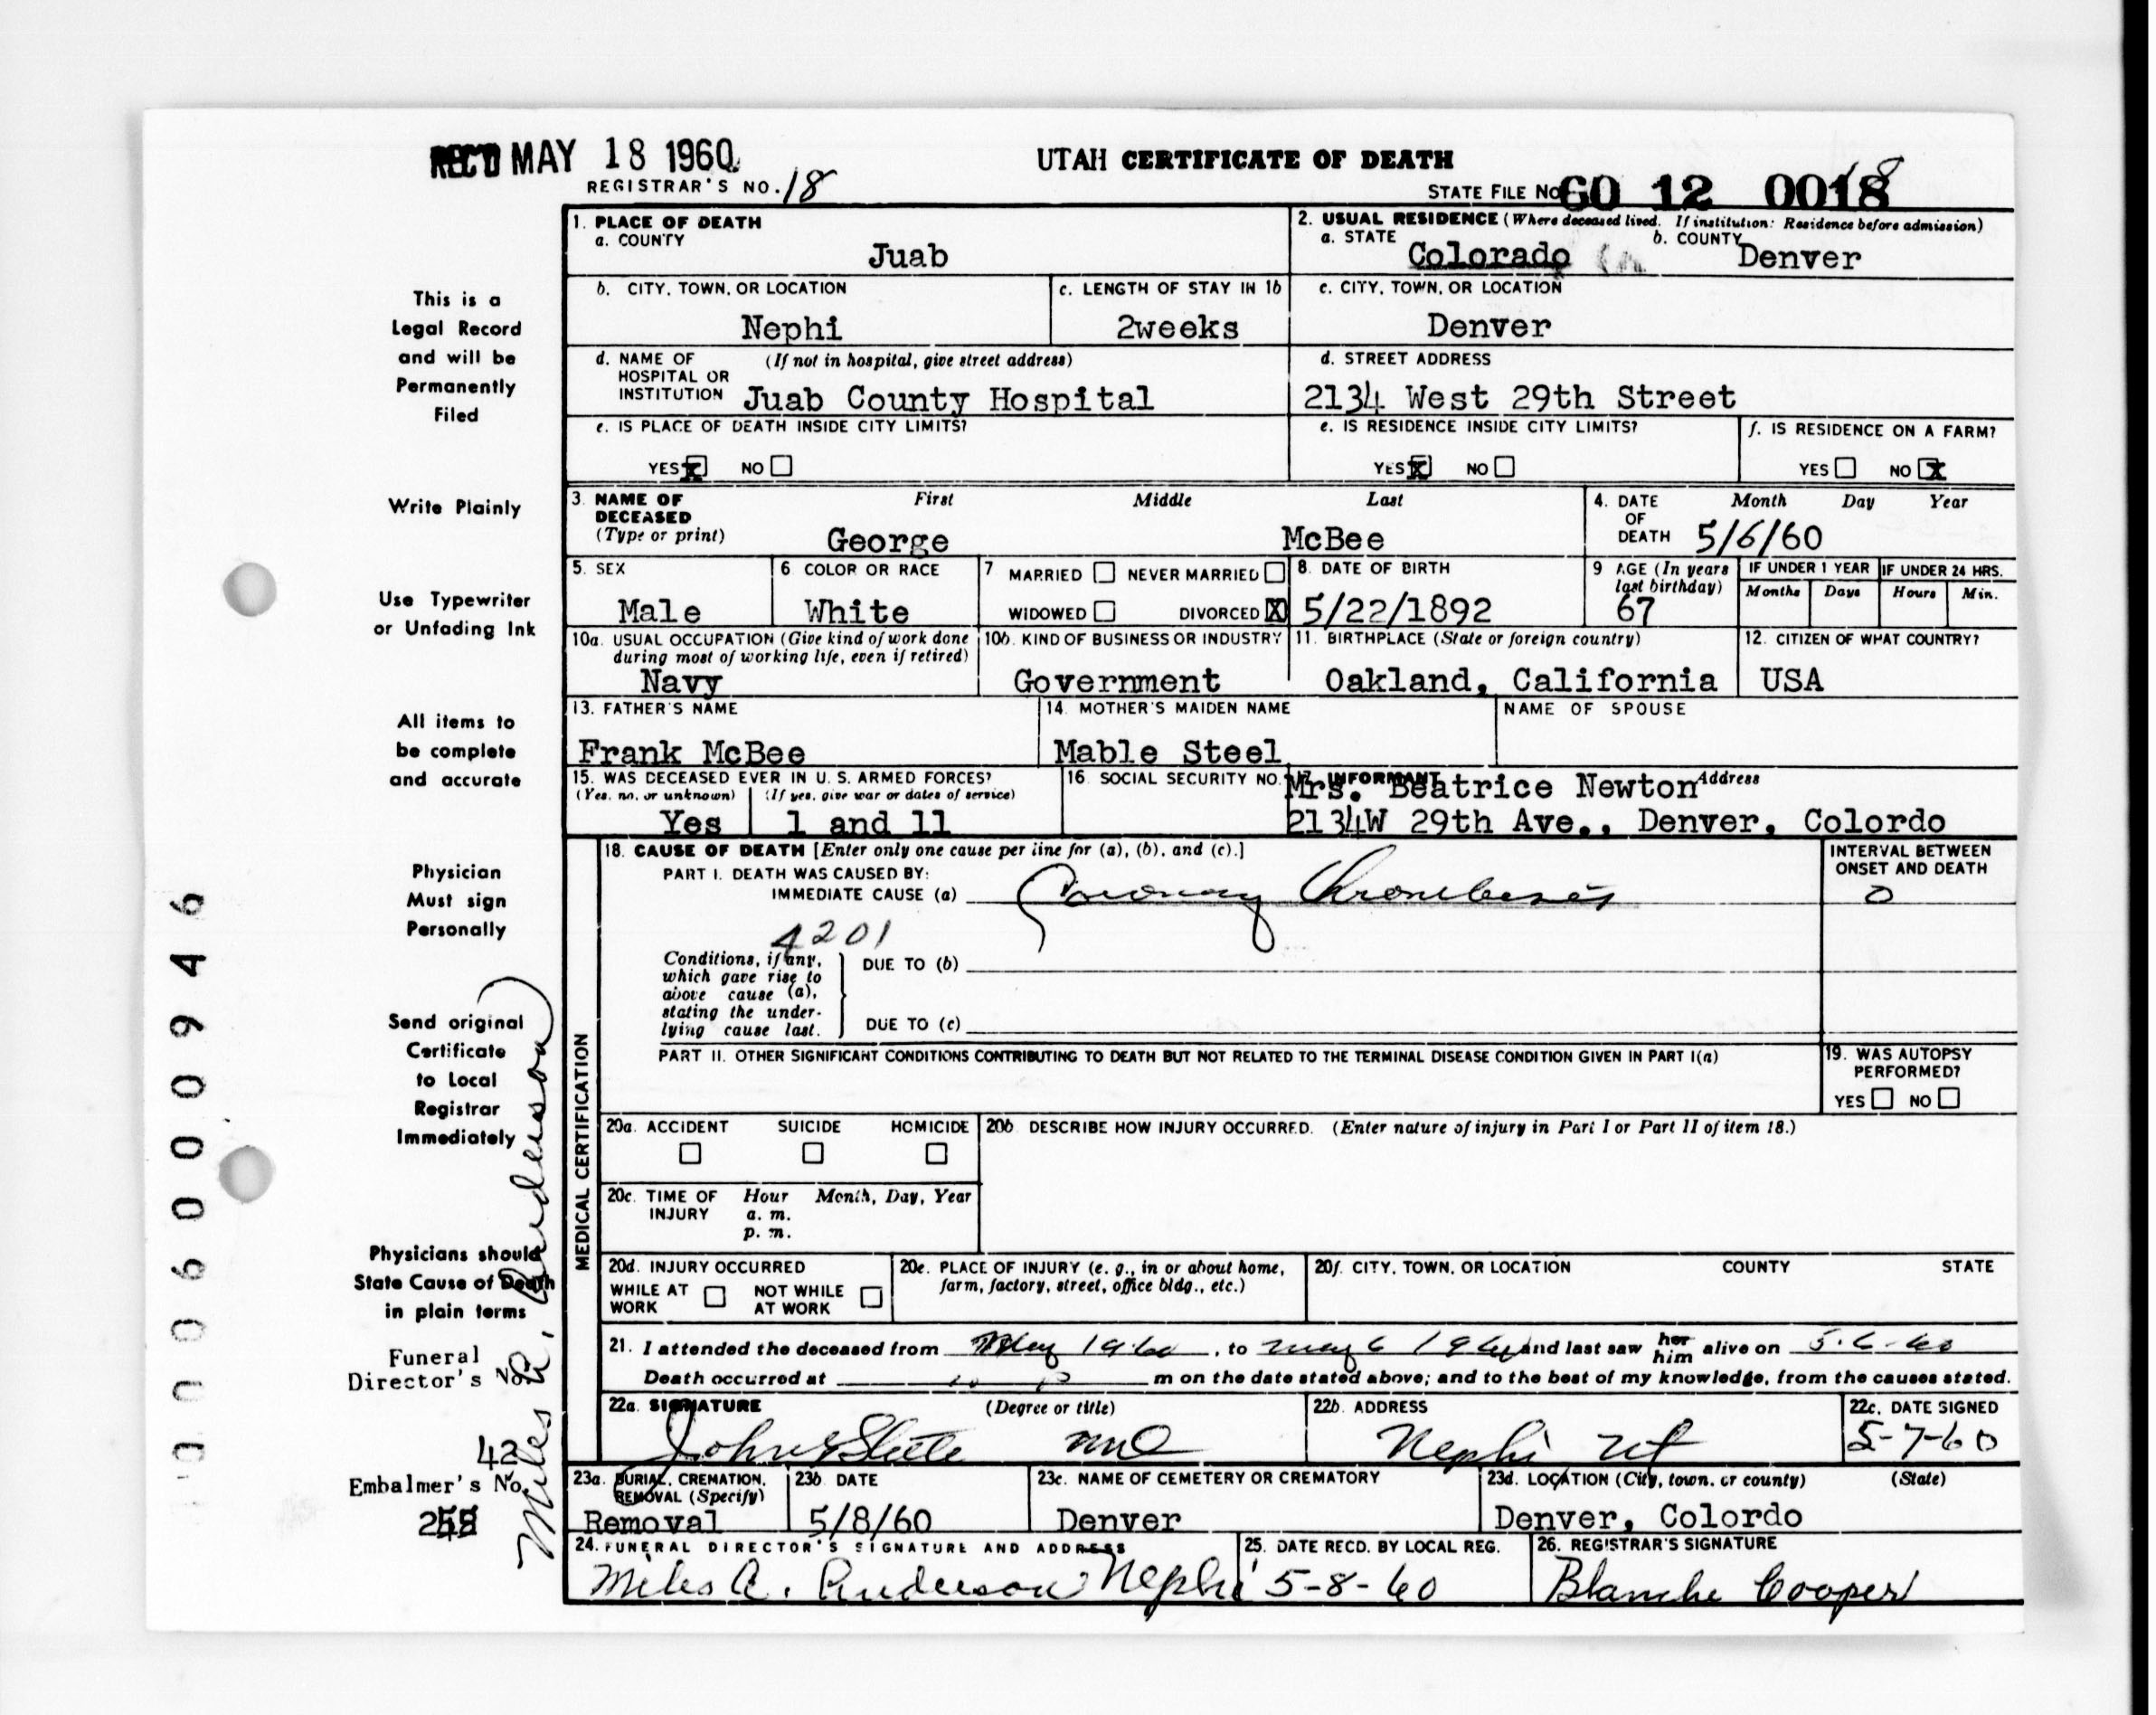 REC'D MAY 18 1960
UTAH CERTIFICATE OF DEATH
REGISTRAR'S NO. 18
STATE FILE NO. 60 12 0018
18
1. PLACE OF DEATH
a. COUNTY
Juab
2. USUAL RESIDENCE (Where deceased lived. If institution: Residence before admission)
a. STATE
Colorado
b. COUNTY
Denver
b. CITY, TOWN, OR LOCATION
Nephi
c. LENGTH OF STAY IN 1b
2weeks
c. CITY, TOWN, OR LOCATION
Denver
d. NAME OF (If not in hospital, give street address)
HOSPITAL OR
INSTITUTION Juab County Hospital
d. STREET ADDRESS
2134 West 29th Street
e. IS PLACE OF DEATH INSIDE CITY LIMITS?
YES X NO
e. IS RESIDENCE INSIDE CITY LIMITS?
YES X NO
f. IS RESIDENCE ON A FARM?
YES NO X
3. NAME OF
DECEASED
(Type or print)
First Middle Last
George McBee
4. DATE
OF
DEATH
Month Day Year
5/6/60
5. SEX
Male
6 COLOR OR RACE
White
7 MARRIED NEVER MARRIED
WIDOWED DIVORCED X
8. DATE OF BIRTH
5/22/1892
9 AGE (In years
last birthday)
67
IF UNDER 1 YEAR
Months Days
IF UNDER 24 HRS.
Hours Min.
10a. USUAL OCCUPATION (Give kind of work done
during most of working life, even if retired)
Navy
10b. KIND OF BUSINESS OR INDUSTRY
Government
11. BIRTHPLACE (State or foreign country)
Oakland, California
12. CITIZEN OF WHAT COUNTRY?
USA
13. FATHER'S NAME
Frank McBee
14. MOTHER'S MAIDEN NAME
Mable Steel
NAME OF SPOUSE
15. WAS DECEASED EVER IN U. S. ARMED FORCES?
(Yes, no, or unknown) (If yes, give war or dates of service)
Yes 1 and 11
16. SOCIAL SECURITY NO.
17. INFORMANT Address
Mrs. Beatrice Newton
2134W 29th Ave., Denver, Colordo
MEDICAL CERTIFICATION
18. CAUSE OF DEATH [Enter only one cause per line for (a), (b), and (c).]
PART I. DEATH WAS CAUSED BY:
IMMEDIATE CAUSE (a) Coronary Thrombosis
INTERVAL BETWEEN
ONSET AND DEATH
0
4201
Conditions, if any,
which gave rise to
above cause (a),
stating the under-
lying cause last.
DUE TO (b)
DUE TO (c)
PART II. OTHER SIGNIFICANT CONDITIONS CONTRIBUTING TO DEATH BUT NOT RELATED TO THE TERMINAL DISEASE CONDITION GIVEN IN PART I(a)
19. WAS AUTOPSY
PERFORMED?
YES NO
20a. ACCIDENT SUICIDE HOMICIDE
20b. DESCRIBE HOW INJURY OCCURRED. (Enter nature of injury in Part I or Part II of item 18.)
20c. TIME OF Hour Month, Day, Year
INJURY a. m.
p. m.
20d. INJURY OCCURRED
WHILE AT NOT WHILE
WORK AT WORK
20e. PLACE OF INJURY (e. g., in or about home,
farm, factory, street, office bldg., etc.)
20f. CITY, TOWN, OR LOCATION COUNTY STATE
21. I attended the deceased from May 1960, to May 6 1960 and last saw her him alive on 5-6-60
Death occurred at 10 P m on the date stated above; and to the best of my knowledge, from the causes stated.
22a. SIGNATURE (Degree or title)
John Steele MD
22b. ADDRESS
Nephi Ut
22c. DATE SIGNED
5-7-60
23a. BURIAL, CREMATION,
REMOVAL (Specify)
Removal
23b. DATE
5/8/60
23c. NAME OF CEMETERY OR CREMATORY
Denver
23d. LOCATION (City, town, or county) (State)
Denver, Colordo
24. FUNERAL DIRECTOR'S SIGNATURE AND ADDRESS
Miles A. Anderson Nephi
25. DATE RECD. BY LOCAL REG.
5-8-60
26. REGISTRAR'S SIGNATURE
Blanche Cooper
This is a
Legal Record
and will be
Permanently
Filed
Write Plainly
Use Typewriter
or Unfading Ink
All items to
be complete
and accurate
Physician
Must sign
Personally
Send original
Certificate
to Local
Registrar
Immediately
Physicians should
State Cause of Death
in plain terms
Funeral
Director's No.
42
Embalmer's No.
Miles A. Anderson
0006000946